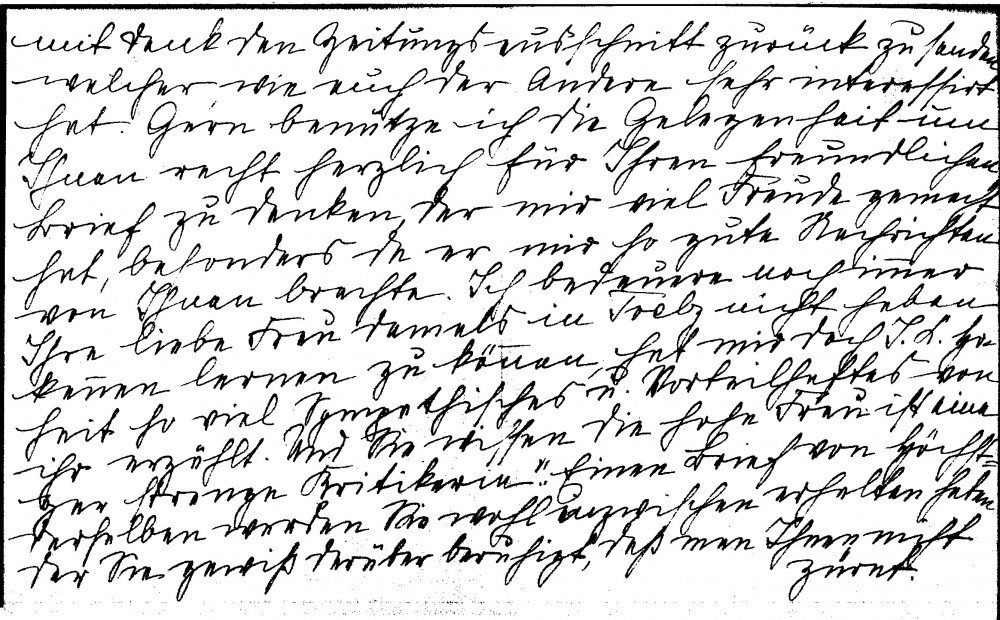 mit Dank den Zeitungsausschnitt zurück zu senden
welcher, wie auch der Andere sehr interessirt
hat. Gern benütze ich die Gelegenheit um
Ihnen recht herzlich für Ihren freundlichen
Brief zu danken, der mir viel Freude gemacht
hat, besonders da er mir so gute Nachrichten
von Ihnen brachte. Ich bedauere noch im̅er
Ihre liebe Frau damals in nicht haben
ken̅en lernen zu kön̅en, hat mir doch I. K. Ho-
heit so viel Sympathisches u. Vorteilhaftes von
ihr erzählt. Und Sie wissen die hohe Frau ist eine
"gar strenge Kritikerin". Einen Brief von Höchst=
derselben werden Sie wohl inzwischen erhalten haben
der Sie gewiß darüber beruhigt, daß man Ihnen nicht
zürnt.